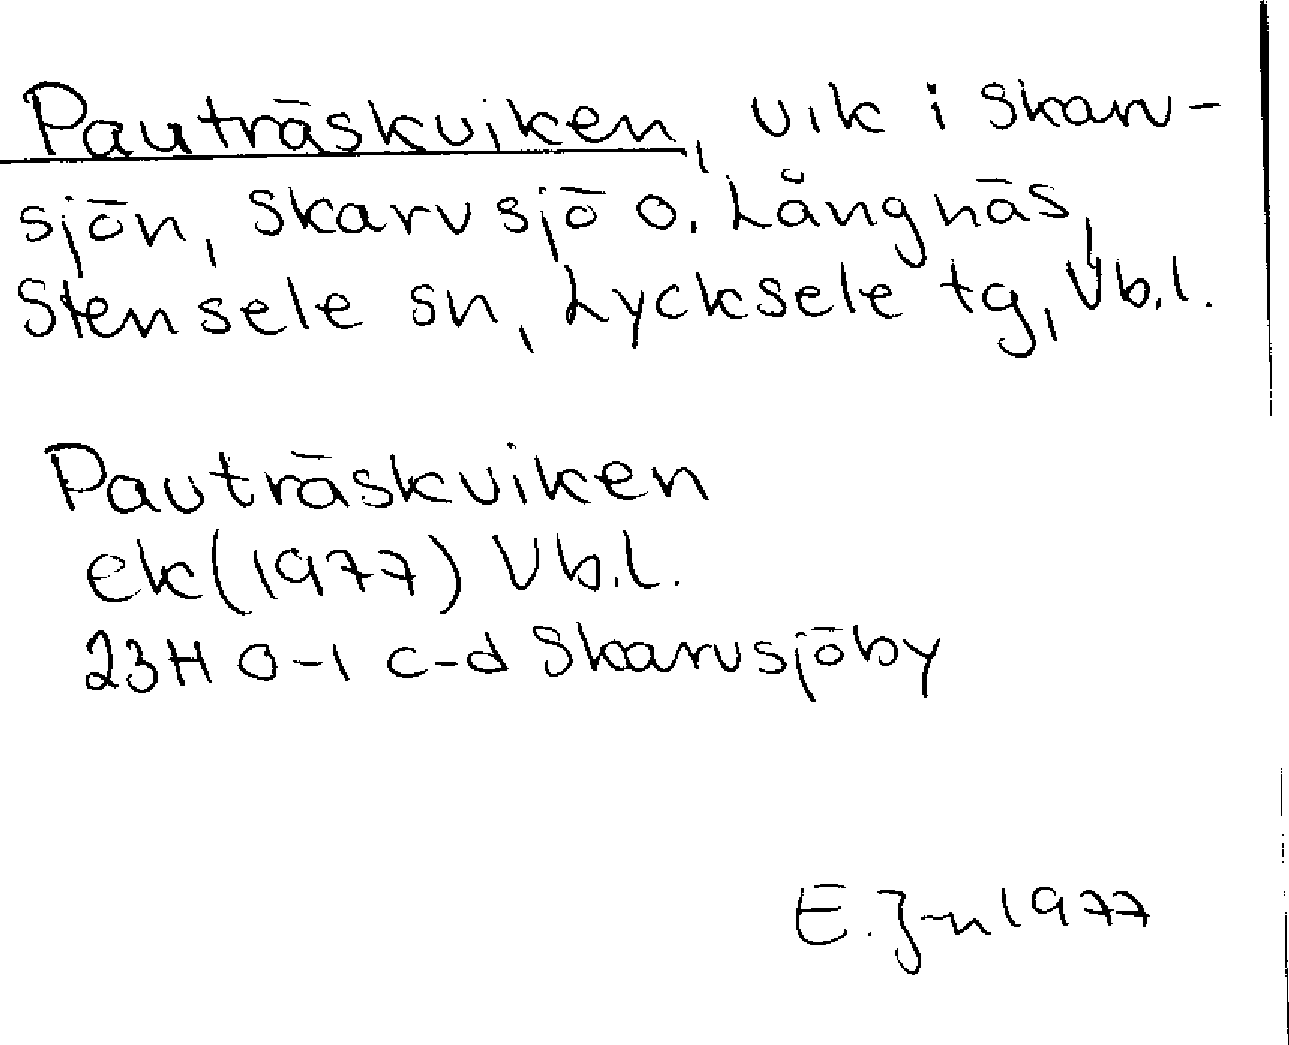 Pauträskviken, vik i Skarv-
sjön, Skarvsjö o. Långnäs,
Stensele sn, Lycksele tg, Vb.l.
Pauträskviken
ek (1977) Vb.l.
23H 0-1 c-d Skarvsjöby
E. J-n 1977